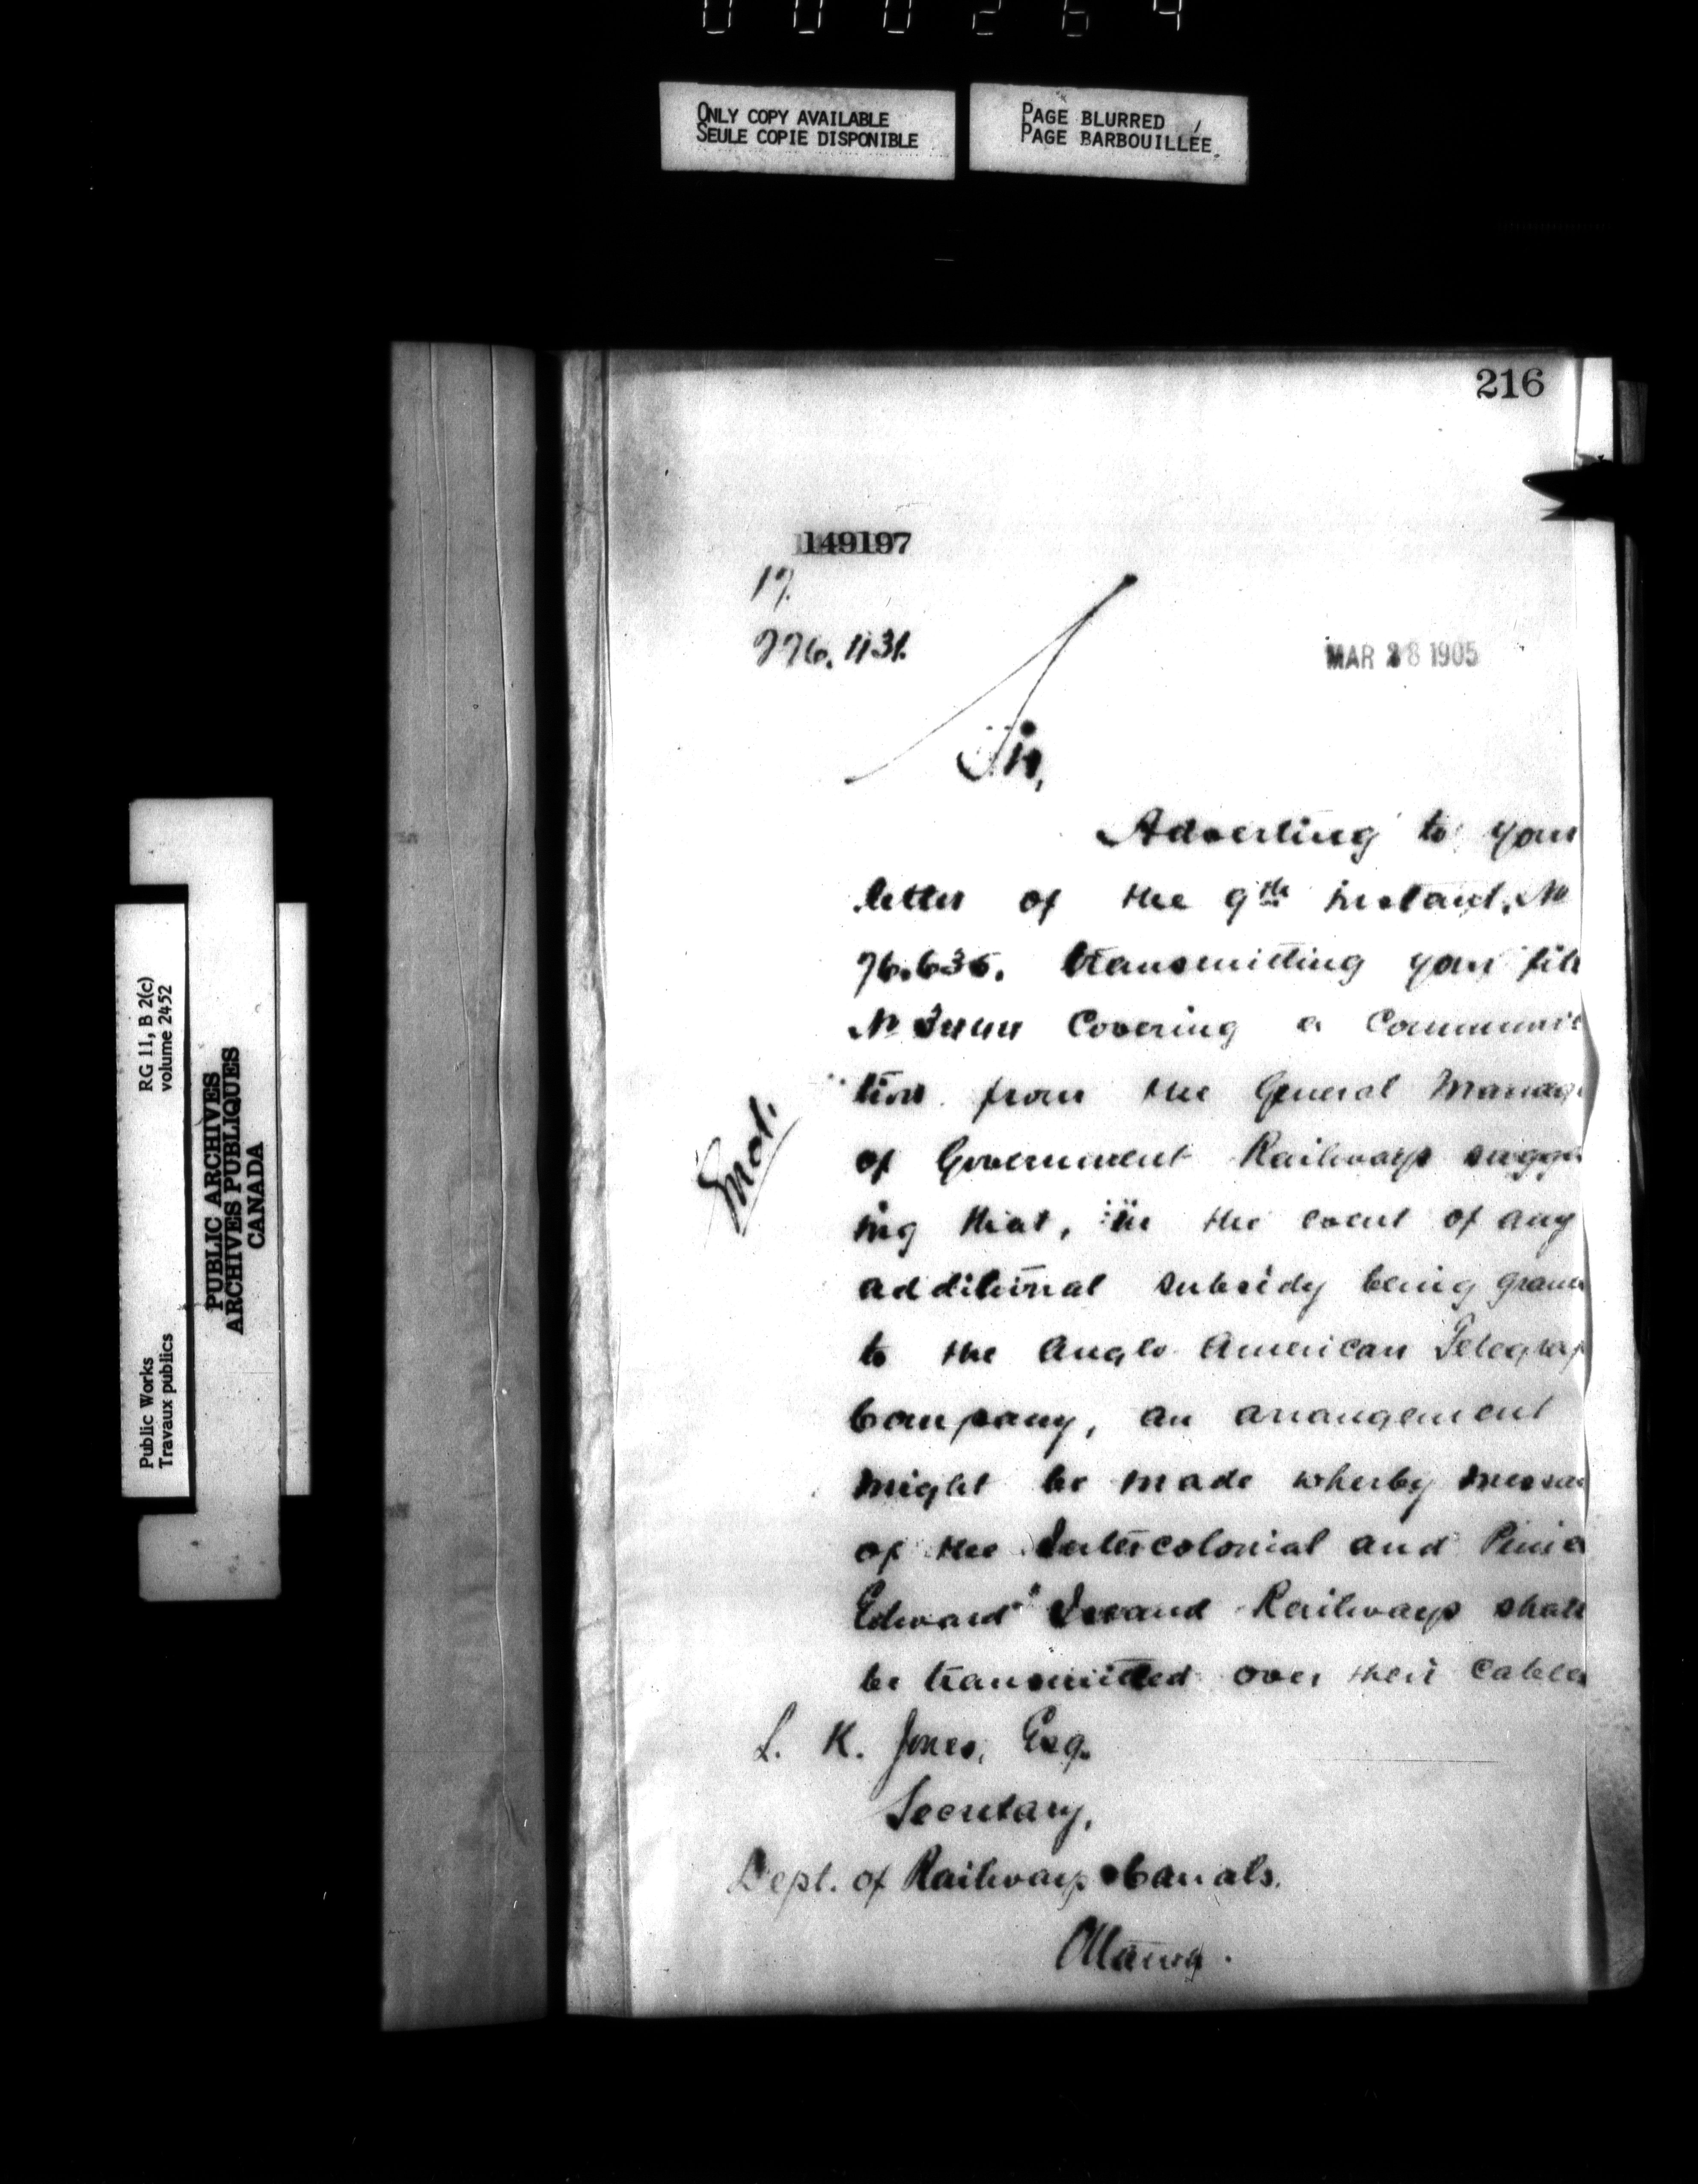 000264
ONLY COPY AVAILABLE
SEULE COPIE DISPONIBLE
PAGE BLURRED
PAGE BARBOUILLÉE
RG 11, B 2(c)
volume 2452
PUBLIC ARCHIVES
ARCHIVES PUBLIQUES
CANADA
Public Works
Travaux publics
216
149197
17.
MAR 28 1905
Sir,
Adverting to your
letter of the 9th instant, No
76.635. transmitting your file
No Covering a Communic
tion from the General Manag
of Government Railways sugges
ing that, in the event of any
additional subsidy being gran
to the Anglo American Telegrap
Company, an arrangement
might be made wherby messa
of the Intercolonial and Prince
Edward Island Railways shall
be transmitted over their Cables
Encl.
L. K. Jones, Esq.
Secretary,
Dept. of Railways & Canals.
Ottawa.